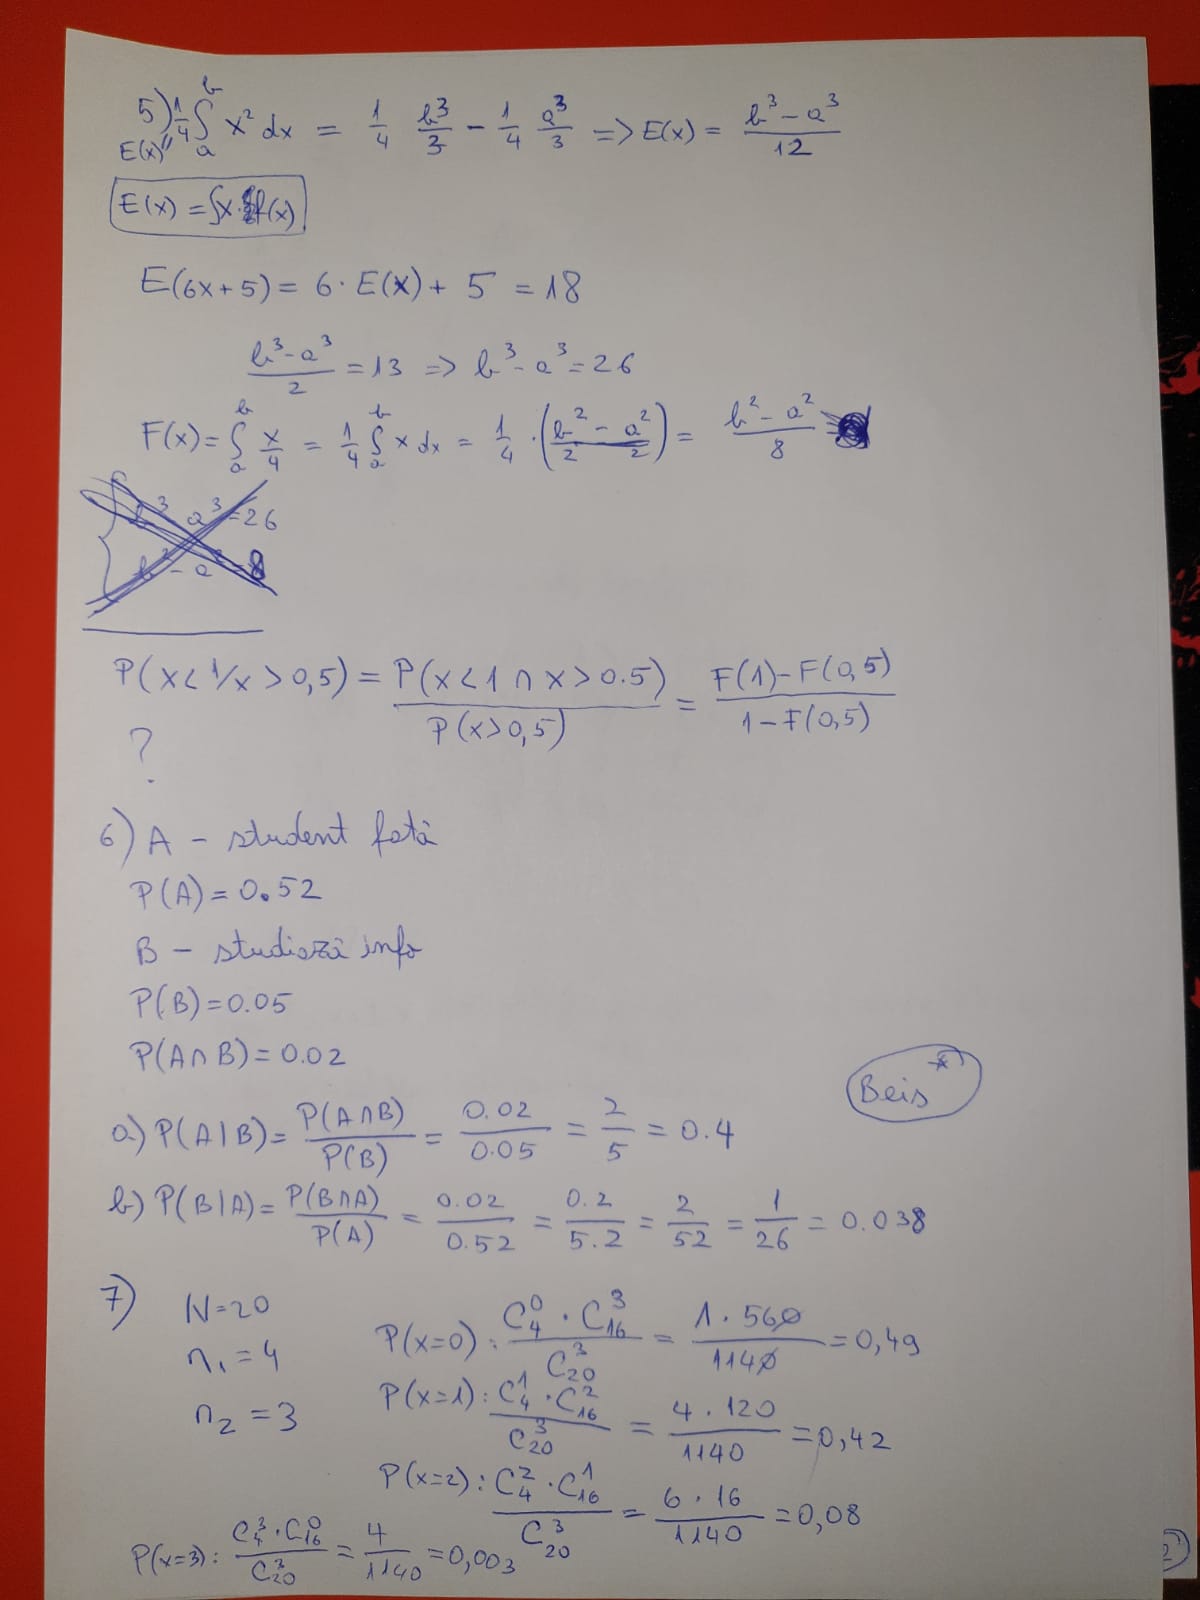 5) 1/4 ∫_a^b x² dx = 1/4 b³/3 - 1/4 a³/3 => E(x) = (b³ - a³)/12
E(x)"
E(x) = ∫x·f(x)
E(6x+5) = 6·E(x) + 5 = 18
(b³ - a³)/2 = 13 => b³ - a³ = 26
F(x) = ∫_a^b x/4 = 1/4 ∫_a^b x dx = 1/4 · (b²/2 - a²/2) = (b² - a²)/8 =
b³ a³ = 26
b² - a² = 8
P(x<1/x>0,5) = P(x<1 ∩ x>0.5)/P(x>0,5) = (F(1) - F(0,5))/(1 - F(0,5))
?
6) A - student fată
P(A) = 0.52
B - studiază info
P(B) = 0.05
P(A∩B) = 0.02
Beis *)
a) P(A|B) = P(A∩B)/P(B) = 0.02/0.05 = 2/5 = 0.4
b) P(B|A) = P(B∩A)/P(A) = 0.02/0.52 = 0.2/5.2 = 2/52 = 1/26 = 0.038
7) N=20
n₁=4
n₂=3
P(x=0): C₄⁰ · C₁₆³ / C₂₀³ = 1·560/1140 = 0,49
P(x=1): C₄¹ · C₁₆² / C₂₀³ = 4·120/1140 = 0,42
P(x=2): C₄² · C₁₆¹ / C₂₀³ = 6·16/1140 = 0,08
P(x=3): C₄³ · C₁₆⁰ / C₂₀³ = 4/1140 = 0,003
2)